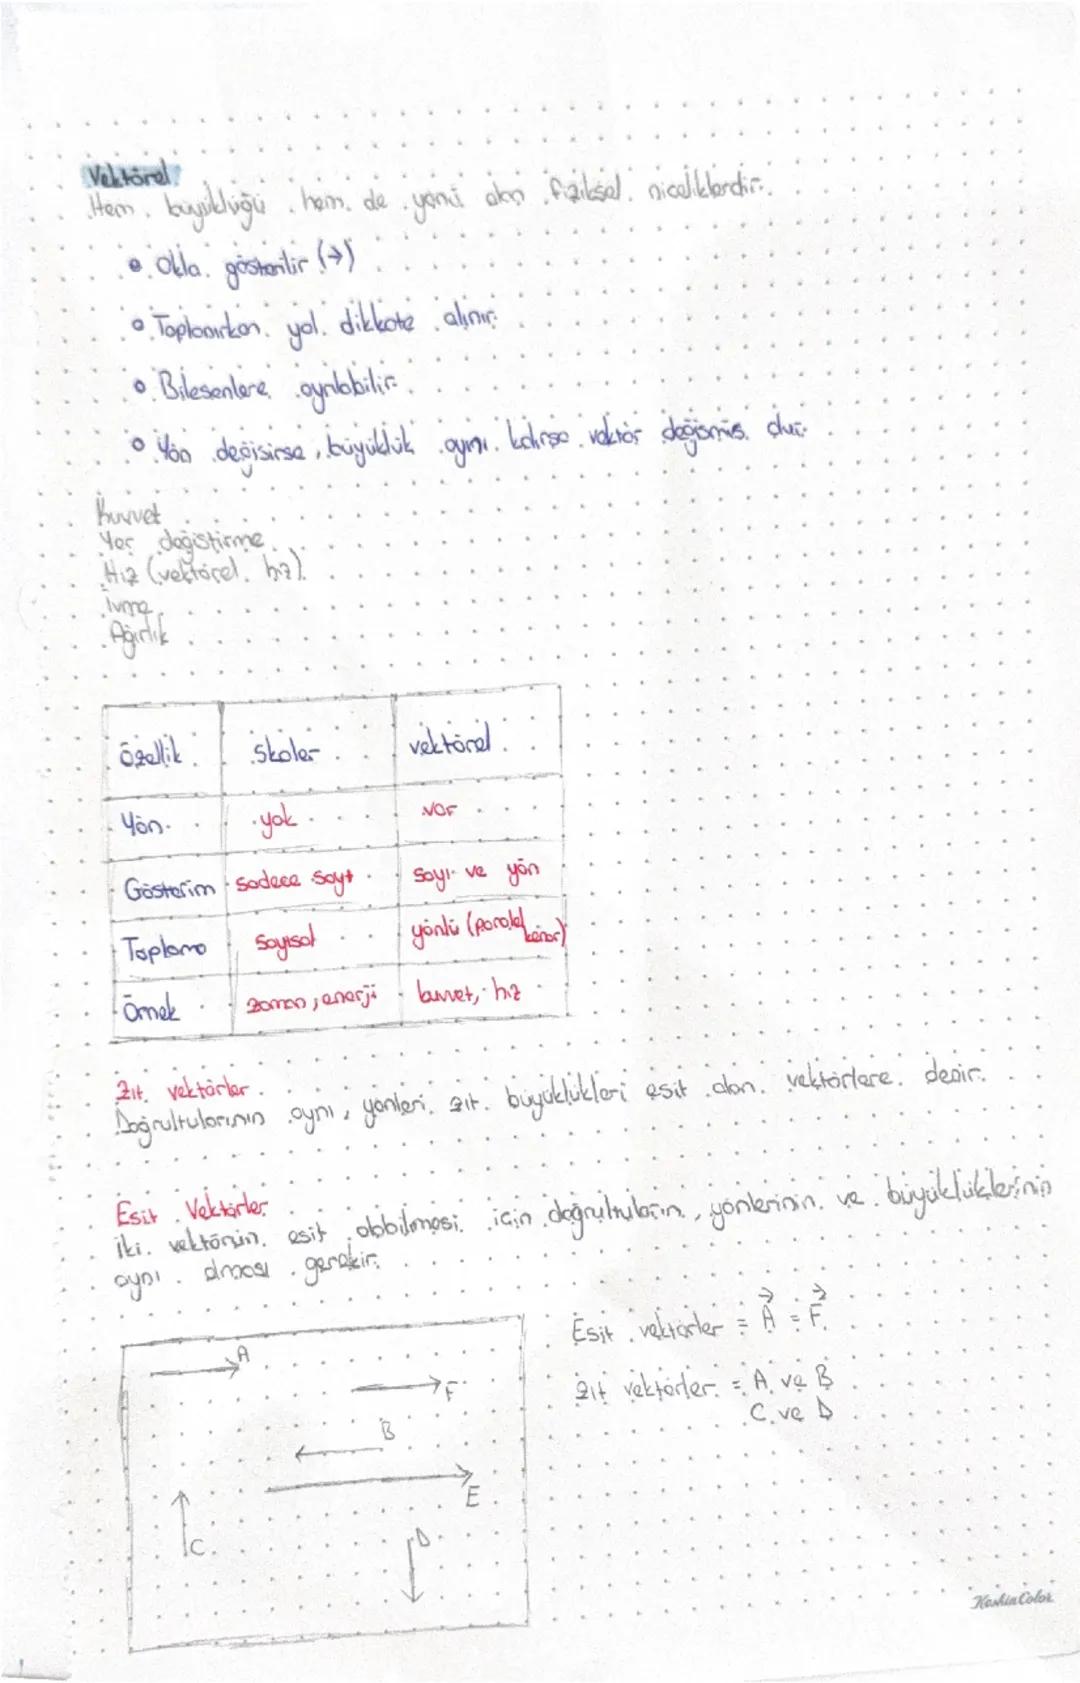 Vektörel
Hem büyüklüğü hem de yönü olan fiziksel niceliklerdir.
Okla gösterilir (→)
Toplanırken yol dikkate alınır.
Bilesenlere ayrılabilir.
Yön değisirse, büyüklük aynı kalırsa vektör değişmis olur.
Kuvvet
Yer değistirme
Hız (vektörel hız)
İvme
Ağırlık
Özellik skaler vektörel
Yön yok var
Gösterim sadece sayı sayı ve yön
Toplama sayısal yönlü (paralel kenar)
Örnek zaman, enerji kuvvet, hız
Zıt vektörler
Doğrultularının aynı, yönleri zıt büyüklükleri esit olan vektörlere denir.
Esit Vektörler
iki vektörün esit olabilmesi icin doğrultuların, yönlerinin ve büyüklüklerinin
aynı olması gerekir.
A
F
B
E
C
D
Esit vektörler = A = F
zıt vektörler = A ve B
C ve D
KashinColor